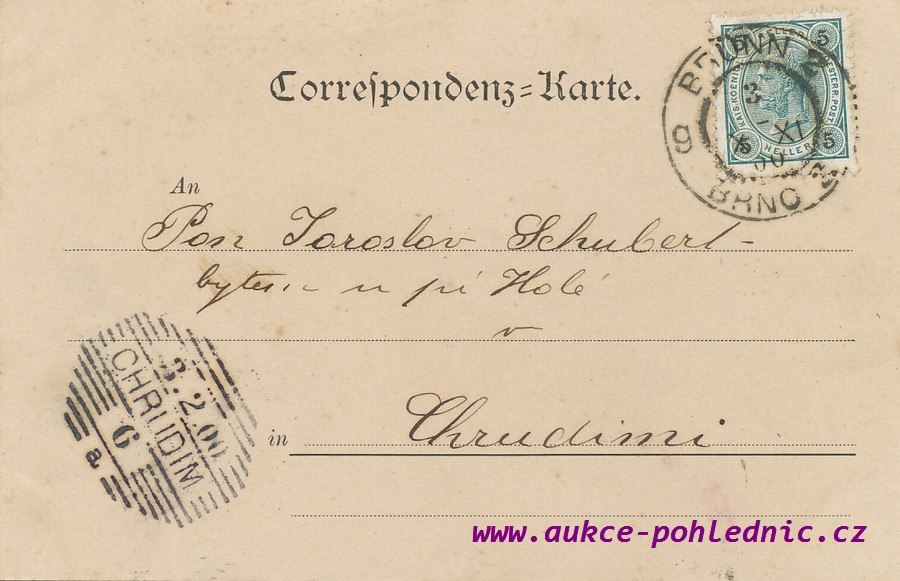 Correspondenz=Karte.
KAIS. KOENIGL. OESTERR. POST
5 HELLER 5
BRÜNN
3
XI
00
9
BRNO
An
Pan Jaroslav Schubert
bytem u pí Holé
v
in Chrudimi
CHRUDIM
3.2.00
6
a
www.aukce-pohlednic.cz